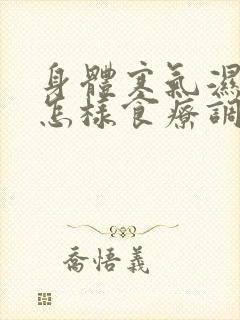 身體寒氣濕
怎樣食療調
喬悟義